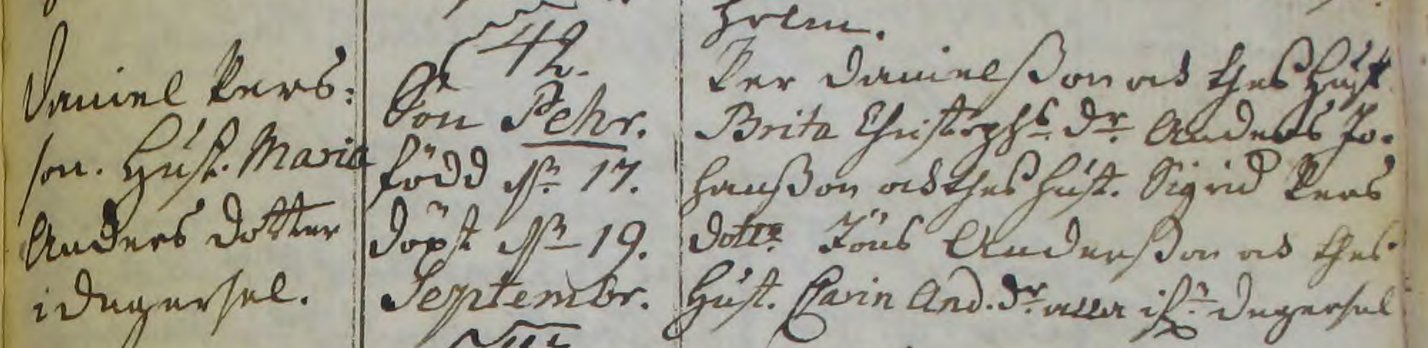 Daniel Pers:
son. Hust. Maria
Anders dotter
i Degersel.
42.
Son Pehr.
född d. 17.
döpt d. 19.
Septembr.
holm.
Per Danielsson och thes Hust.
Brita Christophs. dr. Anders Jo-
hansson och thes hust. Sigrid Pers
dottr. Jöns Andersson och thes
Hust. Carin And. dr. alla i Degersel